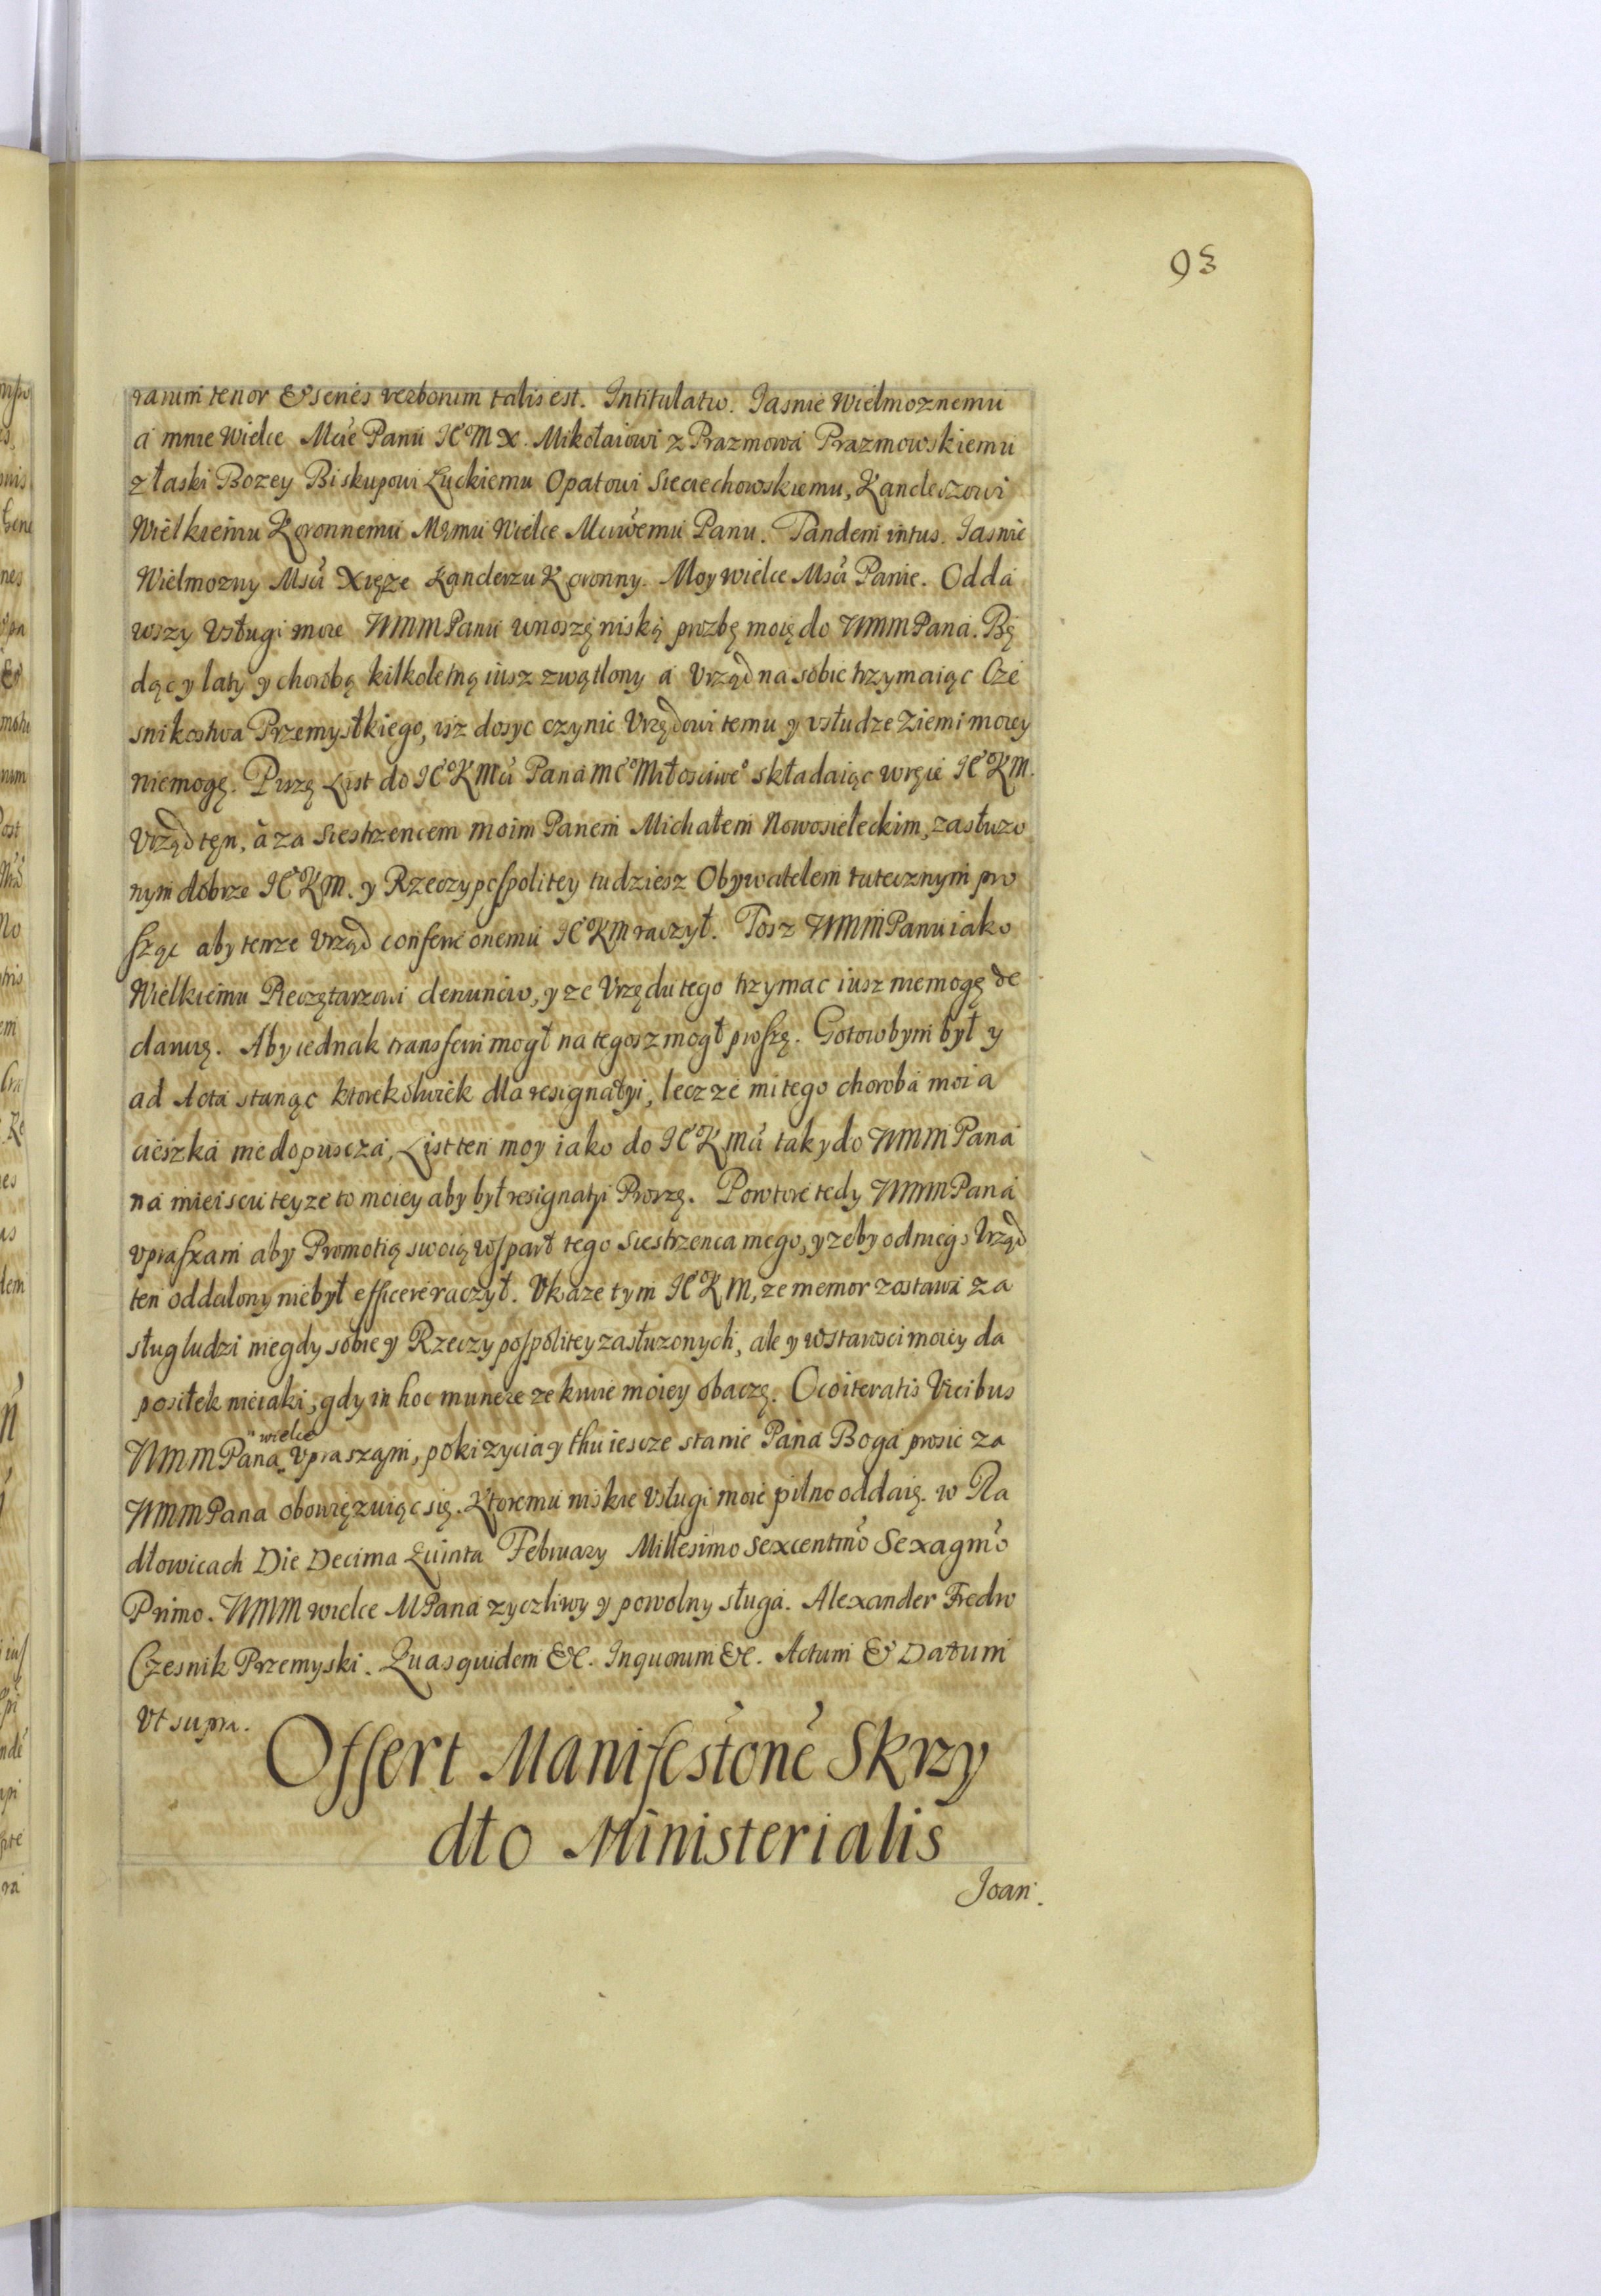 93
rarum tenor & series verborum talis est. Intitulatio. Jasnie Wielmoznemu
a mnie Wielce Mcie Panu JE°M X. Mikołaiowi z Prazmowa Prazmowskiemu
z łaski Bozey Biskupowi Łuckiemu Opatowi Sieciechowskiemu, Kanclerzowi
Wielkiemu Koronnemu Memu Wielce Mciwemu Panu. Tandem intus. Jasnie
Wielmozny Msci Xięze Kanclerzu Koronny. Moy wielce Msci Panie. Odda
wszy Vsługi moie WMMPanu wnoszę niską prozbę moię do WMMPana. Bę
dąc y laty y chorobą kilkoletną iusz zwątlony a Vrząd na sobie trzymaiąc Cze
snikostwa Przemystkiego, isz dosyc czynic Vrzędowi temu y vsłudze Ziemi moiey
niemogę. Piszę List do JE°KMci Pana mé° Miłosciwe° składaiąc w ręie JE°KM.
Vrząd ten, a za Siestrzencem moim Panem Michałem Nowosieleckim, zasłuzo
nym dobrze JE°KM. y Rzeczypospolitey tudziesz Obywatelem tutecznym pro
sząc aby tenze Vrząd conferre onemu JE°KM raczył. Tosz WMMPanu iako
Wielkiemu Pieczętarzowi denuncio, y ze Vrzędu tego trzymac iusz niemogę de
claruię. Aby iednak transferri mogł na tegosz mogł proszę. Gotowbym był y
ad Acta stanąc ktorekolwiek dla resignatyi, lecz ze mi tego choroba moia
cieszka niedopuscza, List ten moy iako do JE°KMci tak y do WMMPana
na mieiscu teyze to moiey aby był resignatyi Proszę. Powtore tedy WMMPana
vpraszam aby Promotią swoią wsparł tego Siestrzenca mego, y zeby od niego Vrząd
ten oddalony niebył efficere raczył. Vkaze tym JE°KM, ze memor zostawa za
sług ludzi niegdy sobie y Rzeczypospolitey zasłuzonych, ale y w starosci moiey da
posiłek nieiaki, gdy in hoc munere ze krwie moiey obaczę. Ocoiteratis Vicibus
WMMPana wielce Vpraszam, poki zycia y thu iescze stanie Pana Boga prosic za
WMMPana obowięzuiąc się. Ktoremu niskie Vsługi moie pilno oddaię. w Ra
dłowicach Die Decima Quinta February Millesimo Sexcentmo Sexagmo
Primo. WMM wielce MPana zyczliwy y powolny sługa. Alexander Fredro
Czesnik Przemyski. Quasquidem &c. Inquorum &c. Actum & Datum
Vt supra.
Offert Manifestone Skrzy
dło Ministerialis
Joan.